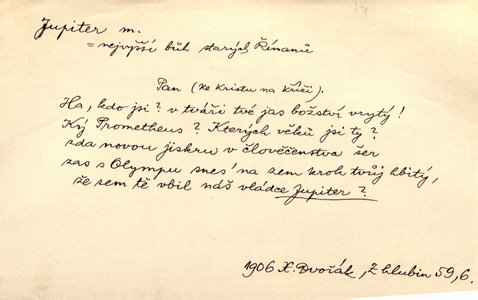 Jupiter m.
= nejvyšší bůh starých Římanů
Pan (ke Kristu na kříži).
Ha, kdo jsi? v tváři tvé jas božství vrytý!
Ký Prometheus? Kterých věků jsi ty?
zda novou jiskru v člověčenstva šer
zas s Olympu snes' na zem krok tvůj hbitý,
že sem tě vbil náš vládce Jupiter?
1906 X. Dvořák, Z hlubin 59, 6.